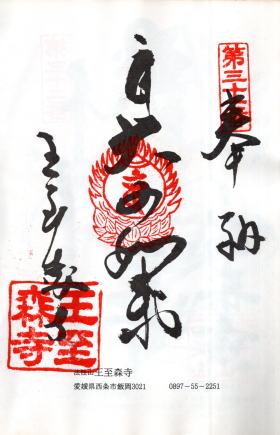 奉納
大日如来
王至森寺
王至
森寺
法性山王至森寺
愛媛県西条市飯岡3021 0897-55-2251